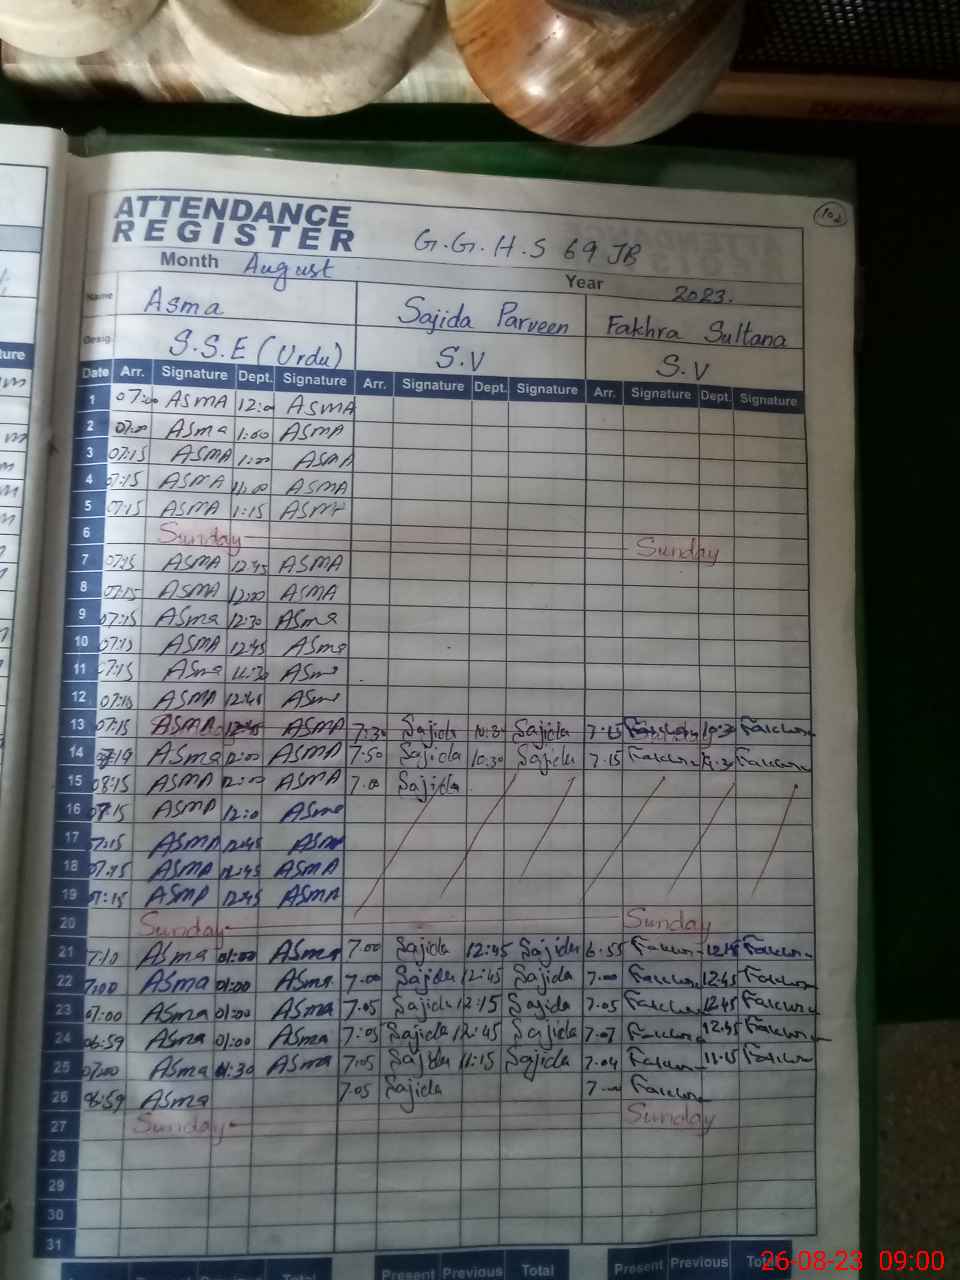 ATTENDANCE
REGISTER
G.G.H.S 69 JB
Month August Year 2023.
Name Asma Sajida Parveen Fakhra Sultana
Desig. S.S.E (Urdu) S.V S.V
Date Arr. Signature Dept. Signature Arr. Signature Dept. Signature Arr. Signature Dept. Signature
1 07:00 ASMA 12:00 ASMA
2 07:00 ASMA 1:00 ASMA
3 07:15 ASMA 1:00 ASMA
4 07:15 ASMA 11:00 ASMA
5 07:15 ASMA 1:15 ASMA
6 Sunday Sunday
7 07:15 ASMA 12:45 ASMA
8 07:15 ASMA 12:00 ASMA
9 07:15 ASma 12:30 ASma
10 ASMA 12:45 ASma
11 07:15 ASma 11:30 ASma
12 07:10 ASMA 12:45 ASma
13 07:15 ASMA 12:45 ASMA 7:30 Sajida 10:30 Sajida 7:15 10:30
14 ASma 12:00 ASMA 7:50 Sajida 10:30 Sajida 7.15
15 08:15 ASMA 12:00 ASMA 7.00 Sajida
16 07:15 ASMA ASma
17 07:15 ASMA 12:45 ASMA
18 07:15 ASMA 12:45 ASMA
19 07:15 ASMA 12:45 ASMA
20 Sunday Sunday
21 7:10 Asma 01:00 Asma 7.00 Sajida 12:45 Sajida 6.55
22 7:00 Asma 01:00 Asma 7.00 Sajida 12:45 Sajida 7.00 12:45
23 07:00 Asma 01:00 Asma 7.05 Sajida 12:15 Sajida 7.05 12:45
24 06:59 Asma 01:00 Asma 7:05 Sajida 12:45 Sajida 7.07 12:45
25 07:00 Asma 11:30 Asma 7.05 Sajida 11:15 Sajida 7.04 11:15
26 06:59 Asma 7.05 Sajida 7.00
27 Sunday Sunday
28
29
30
31
Present Previous Total Present Previous Total
26-08-23 09:00